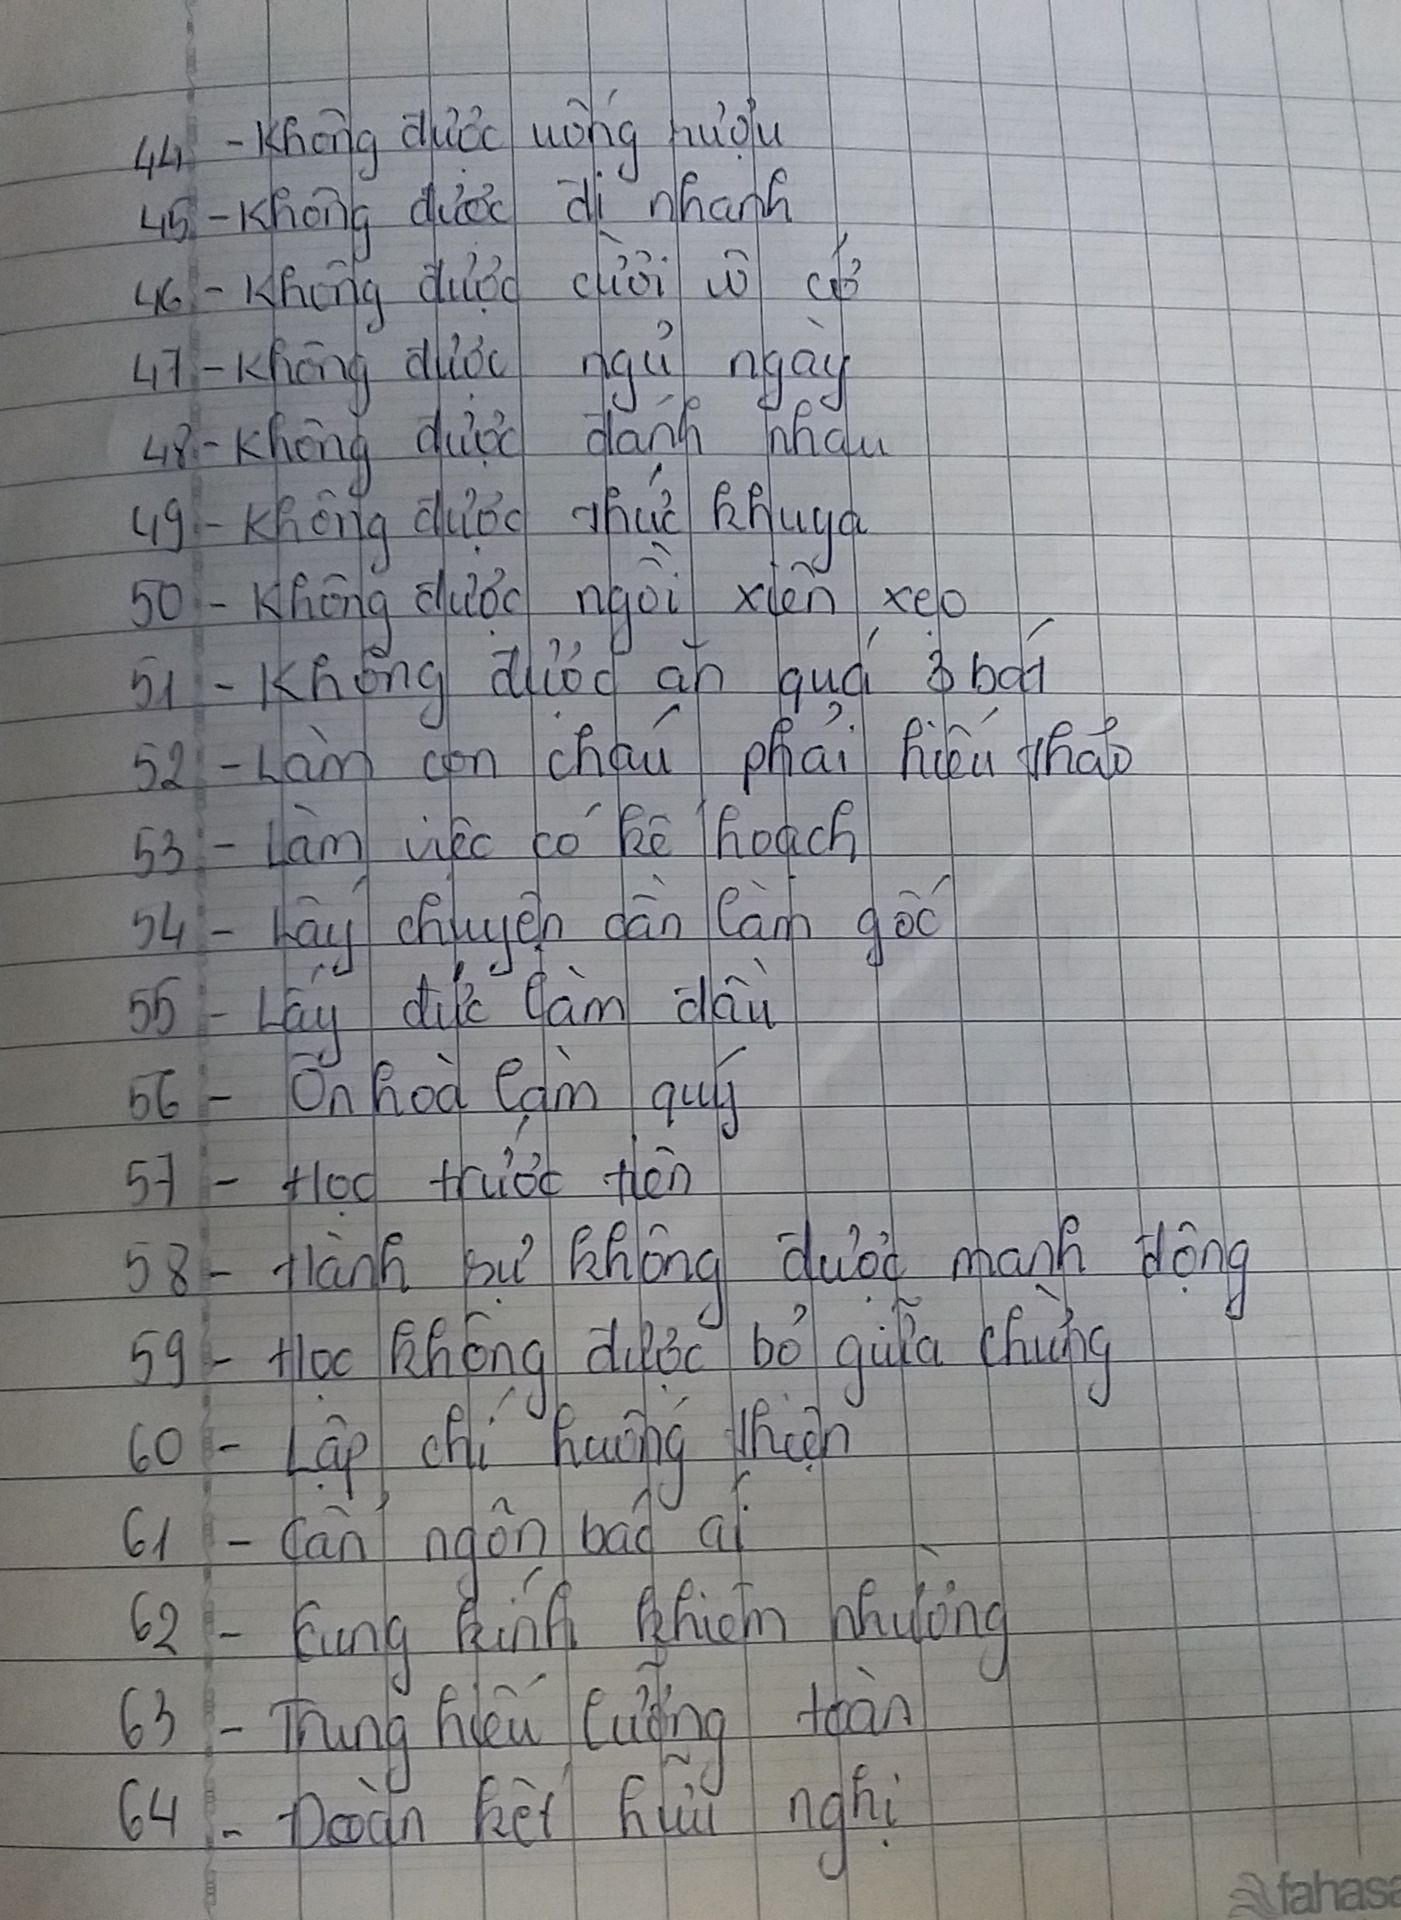 44 - Không được uống rượu
45 - Không được đi nhanh
46 - Không được cười vô cớ
47 - Không được ngủ ngày
48 - Không được đánh nhau
49 - Không được thức khuya
50 - Không được ngồi xiên xẹo
51 - Không được ăn quá 3 bát
52 - Làm con cháu phải hiếu thảo
53 - Làm việc có kế hoạch
54 - Lấy chuyên cần làm gốc
55 - Lấy đức làm đầu
56 - Ôn hoà làm quý
57 - Học trước tiên
58 - Hành sự không được manh động
59 - Học không được bỏ giữa chừng
60 - Lập chí hướng thiện
61 - Cẩn ngôn bác ái
62 - Cung kính khiêm nhường
63 - Trung hiếu lưỡng toàn
64 - Đoàn kết hữu nghị
fahasa